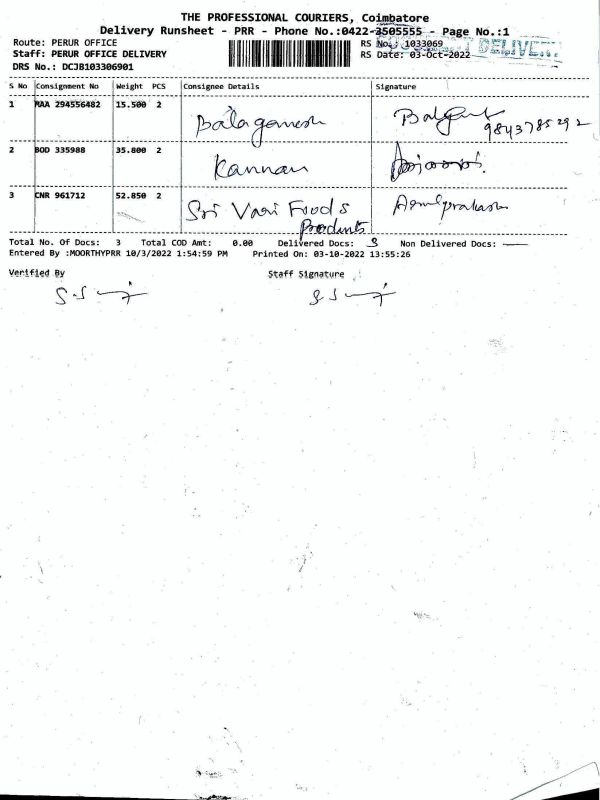 THE PROFESSIONAL COURIERS, Coimbatore
Delivery Runsheet - PRR - Phone No.:0422-3505555 - Page No.:1
Route: PERUR OFFICE RS No.: 1033069 DELIVERY
Staff: PERUR OFFICE DELIVERY RS Date: 03-Oct-2022
DRS No.: DCJB103306901
S No Consignment No Weight PCS Consignee Details Signature
1 RAA 294556482 15.500 2 Balaganesh
9843785292
2 BOD 335988 35.800 2 Kannan
3 CNR 961712 52.850 2 Sri Vari Foods
Products
Total No. Of Docs: 3 Total COD Amt: 0.00 Delivered Docs: 3 Non Delivered Docs: —
Entered By :MOORTHYPRR 10/3/2022 1:54:59 PM Printed On: 03-10-2022 13:55:26
Verified By Staff Signature